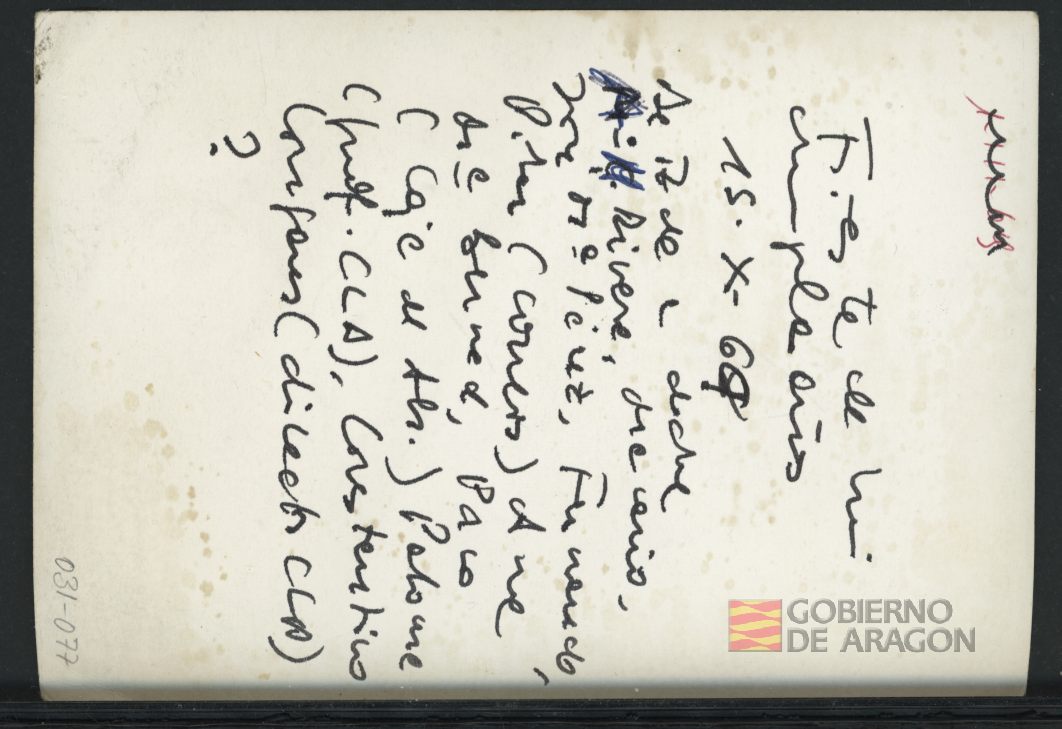 Fiesta de mi
cumpleaños
15. X- 69
De Iz de a dcha
Rivera, Macario,
José Mª Pérez, Fernando,
Pilar (Correos) Ana
Mª Bernad, Paco
(Caja de Ah.) Palome
(prof. CLA), Constantino
Comfanes (directo CLA)
?
031-077
GOBIERNO
DE ARAGON